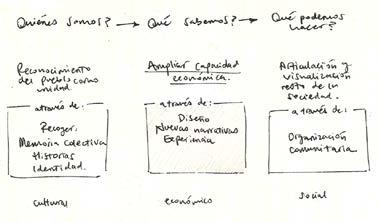 Quiénes somos? → Qué sabemos? → Qué podemos hacer?
Reconocimiento del pueblo como unidad
a través de:
Recoger.
Memoria colectiva
Historias
Identidad.
cultural
Ampliar capacidad económica.
a través de:
Diseño
Nuevas narrativas
Experiencia
económico
Articulación y visualización resto de la sociedad.
a través de:
Organización comunitaria.
social